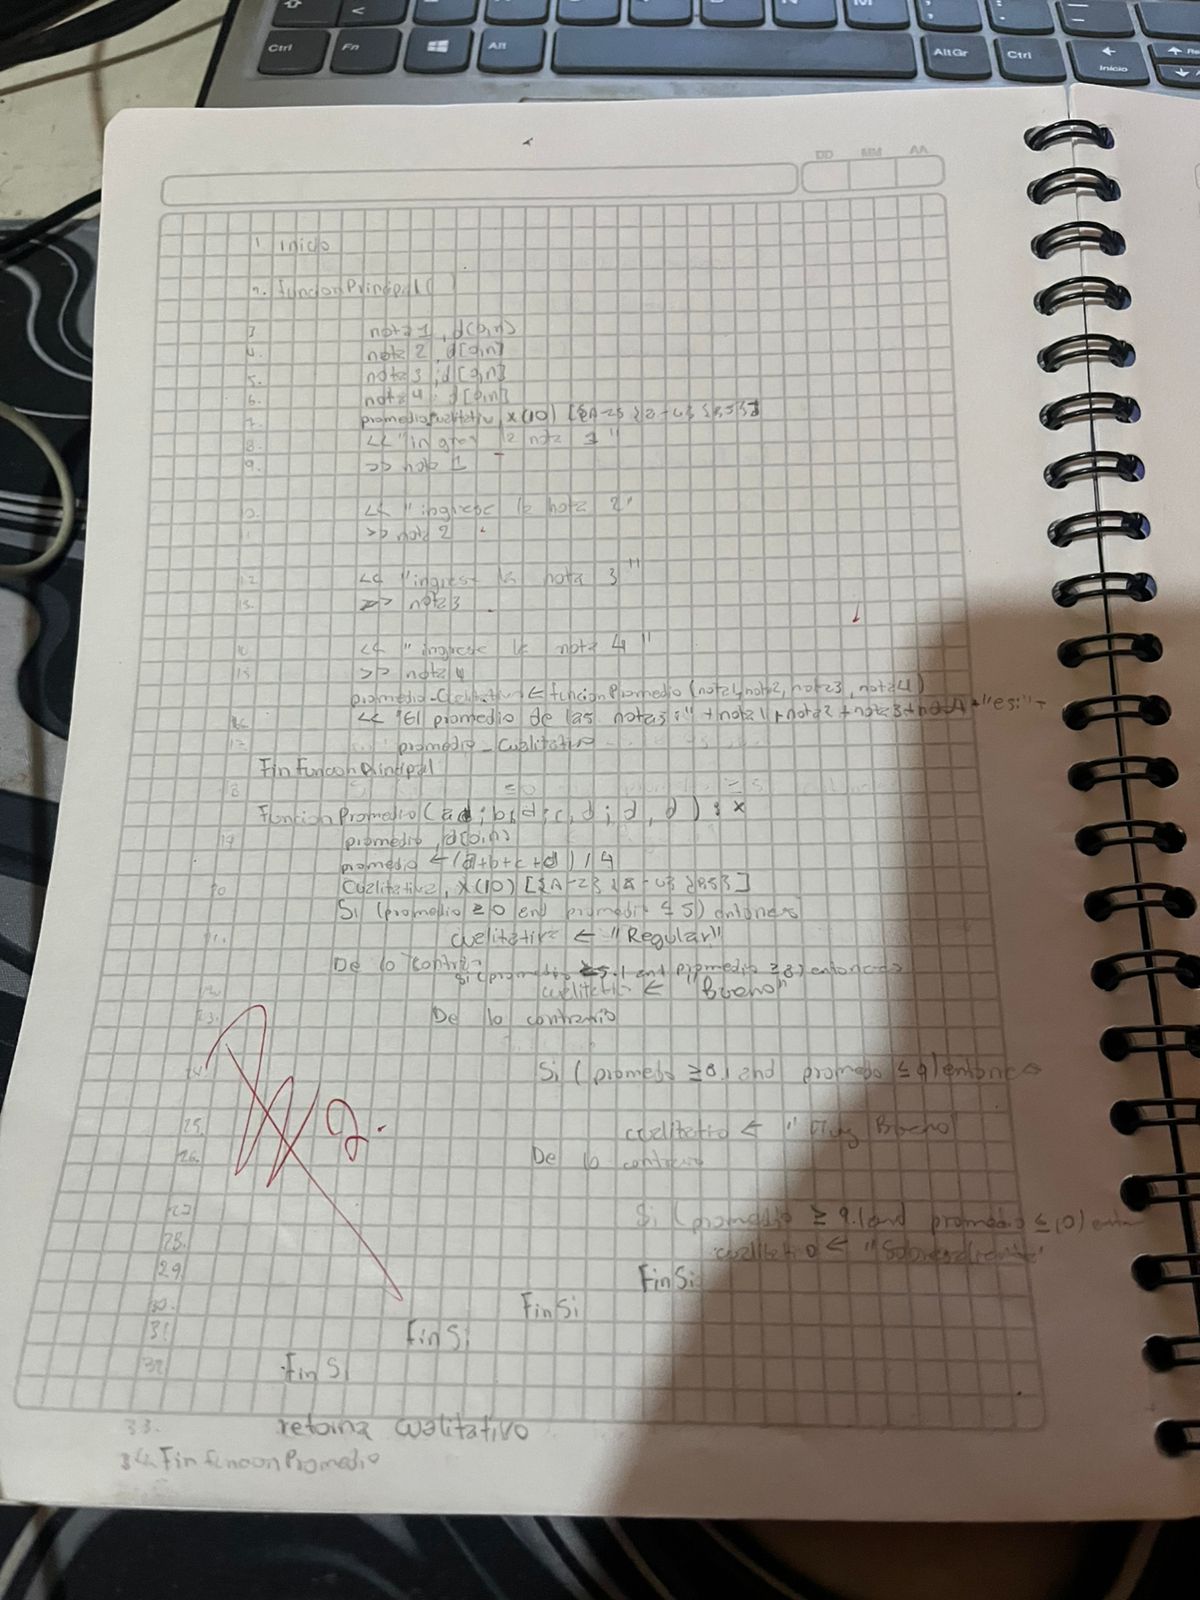 Ctrl Fn Alt AltGr Ctrl Inicio
DD MM AA
1 inicio
2. funcionPrincipal()
3 nota 1, d[0,n]
4. nota 2, d[0,n]
5. nota 3, d[0,n]
6. nota 4. d[0,n]
7. x(10)
8. << "ingrese la nota 1"
9. >> nota 1
10. << "ingrese la nota 2"
11 >> nota 2
12 << "ingrese la nota 3"
13. >> nota 3
14 << "ingrese la nota 4"
15 >> nota 4
promedio_Cualitativo ← funcionPromedio (nota1, nota2, nota3, nota4)
16. << "El promedio de las notas:" + nota 1 + nota2 + nota3 + nota4 + "es:" +
17 promedio_Cualitativo
Fin FuncionPrincipal
18
Funcion Promedio (a d; b, d; c, d; d, d) : x
19 promedio, d[0,n]
promedio ← (a+b+c+d) / 4
20 x(10) [{A-Z}
Si (promedio ≥ 0 and promedio ≤ 5) entonces
← "Regular"
De lo
and promedio ≥ 8) entonces
← "Bueno"
De lo contrario
24. Si (promedio ≥ 8.1 and promedio ≤ 9) entonces
25. ← "Muy Bueno
26. De lo contrario
27 Si (promedio ≥ 9.1 and promedio ≤ 10)
28. ← "Sobresaliente"
29. FinSi
30. FinSi
31 FinSi
32 Fin Si
33. retorna cualitativo
34. Fin funcionPromedio